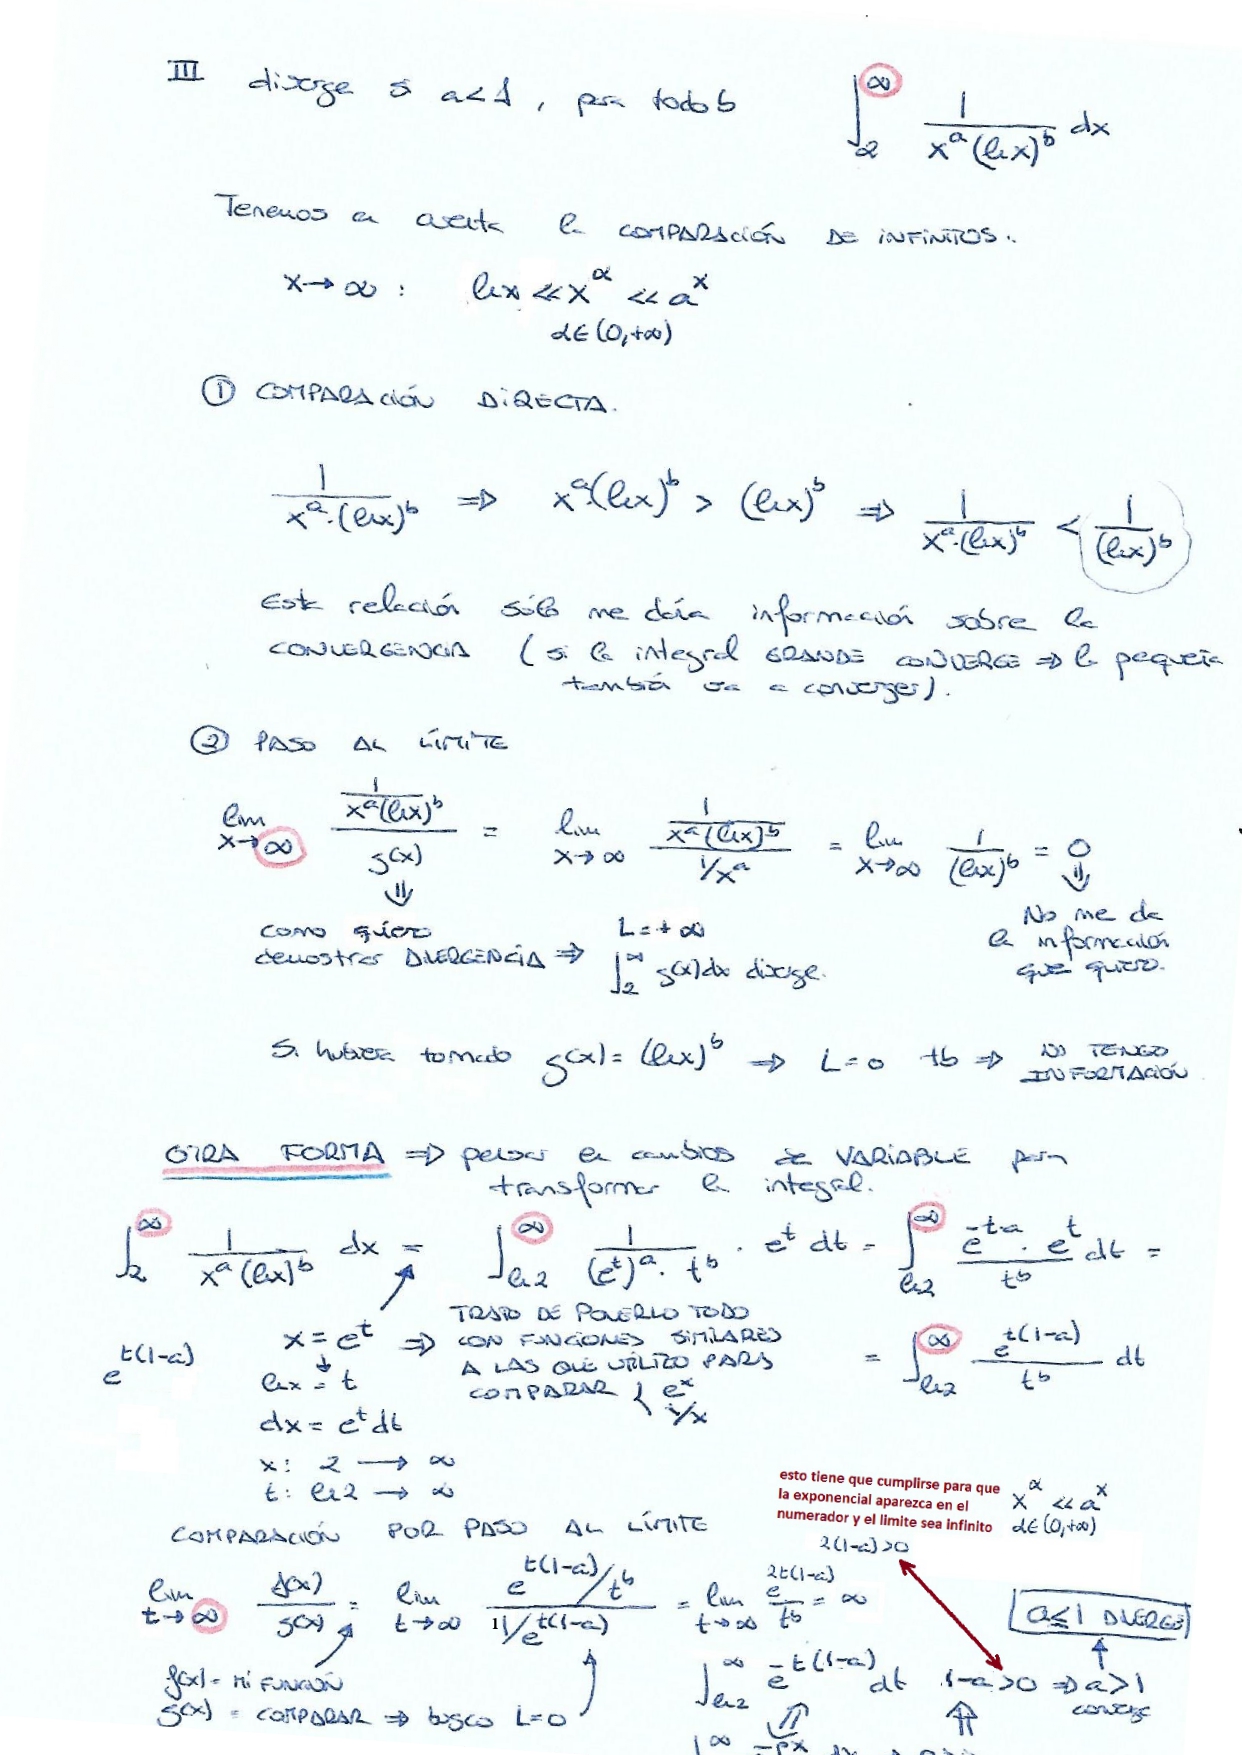 III diverge si a<1, para todo b ∫₂^∞ 1/(x^a (ln x)^b) dx
Tenemos en cuenta la COMPARACIÓN DE INFINITOS.
x→∞: ln x << x^α << a^x
α∈(0,+∞)
① COMPARACIÓN DIRECTA.
1/(x^a·(ln x)^b) ⇒ x^a·(ln x)^b > (ln x)^b ⇒ 1/(x^a·(ln x)^b) < 1/(ln x)^b
Esta relación sólo me daría información sobre la
CONVERGENCIA (si la integral GRANDE CONVERGE ⇒ la pequeña
también va a converger).
② PASO AL LÍMITE
lim x→∞ (1/(x^a(ln x)^b))/g(x) = lim x→∞ (1/(x^a(ln x)^b))/(1/x^a) = lim x→∞ 1/(ln x)^b = 0
como quiero L=+∞ No me da
demostrar DIVERGENCIA ⇒ ∫₂^∞ g(x)dx diverge. la información
que quiero.
Si hubiera tomado g(x)=(ln x)^b ⇒ L=0 tb ⇒ NO TENGO
INFORMACIÓN
OTRA FORMA ⇒ pensar en cambios de VARIABLE para
transformar la integral.
∫₂^∞ 1/(x^a(ln x)^b) dx = ∫_{ln2}^∞ 1/((e^t)^a·t^b)·e^t dt = ∫_{ln2}^∞ (e^{-ta}·e^t)/t^b dt =
x = e^t ⇒ TRATO DE PONERLO TODO
CON FUNCIONES SIMILARES
A LAS QUE UTILIZO PARA
COMPARAR { e^x
1/x
= ∫_{ln2}^∞ e^{t(1-a)}/t^b dt
e^{t(1-a)}
ln x = t
dx = e^t dt
x: 2 → ∞
t: ln2 → ∞
esto tiene que cumplirse para que
la exponencial aparezca en el
numerador y el limite sea infinito
2(1-a)>0
x^α << a^x
α∈(0,+∞)
COMPARACIÓN POR PASO AL LÍMITE
lim t→∞ f(x)/g(x) = lim t→∞ (e^{t(1-a)}/t^b)/(1/e^{t(1-a)}) = lim t→∞ e^{2t(1-a)}/t^b = ∞
a≤1 DIVERGE
f(x) = MI FUNCIÓN
g(x) = COMPARAR ⇒ busco L=∞
∫_{ln2}^∞ e^{-t(1-a)} dt 1-a>0 ⇒ a>1
converge